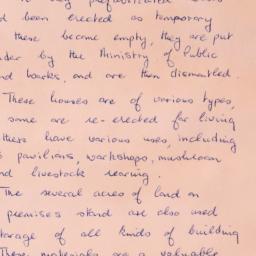 very prefabricated
had been erected as temporary
these become empty, they are put
under by the Ministry of Public
and works, and are then dismantled.
These houses are of various types,
some are re-erected for living
others have various uses, including
pavilions, workshops, mushroom
and livestock rearing.
The several acres of land on
premises stand are also used
storage of all kinds of building
These materials are a valuable